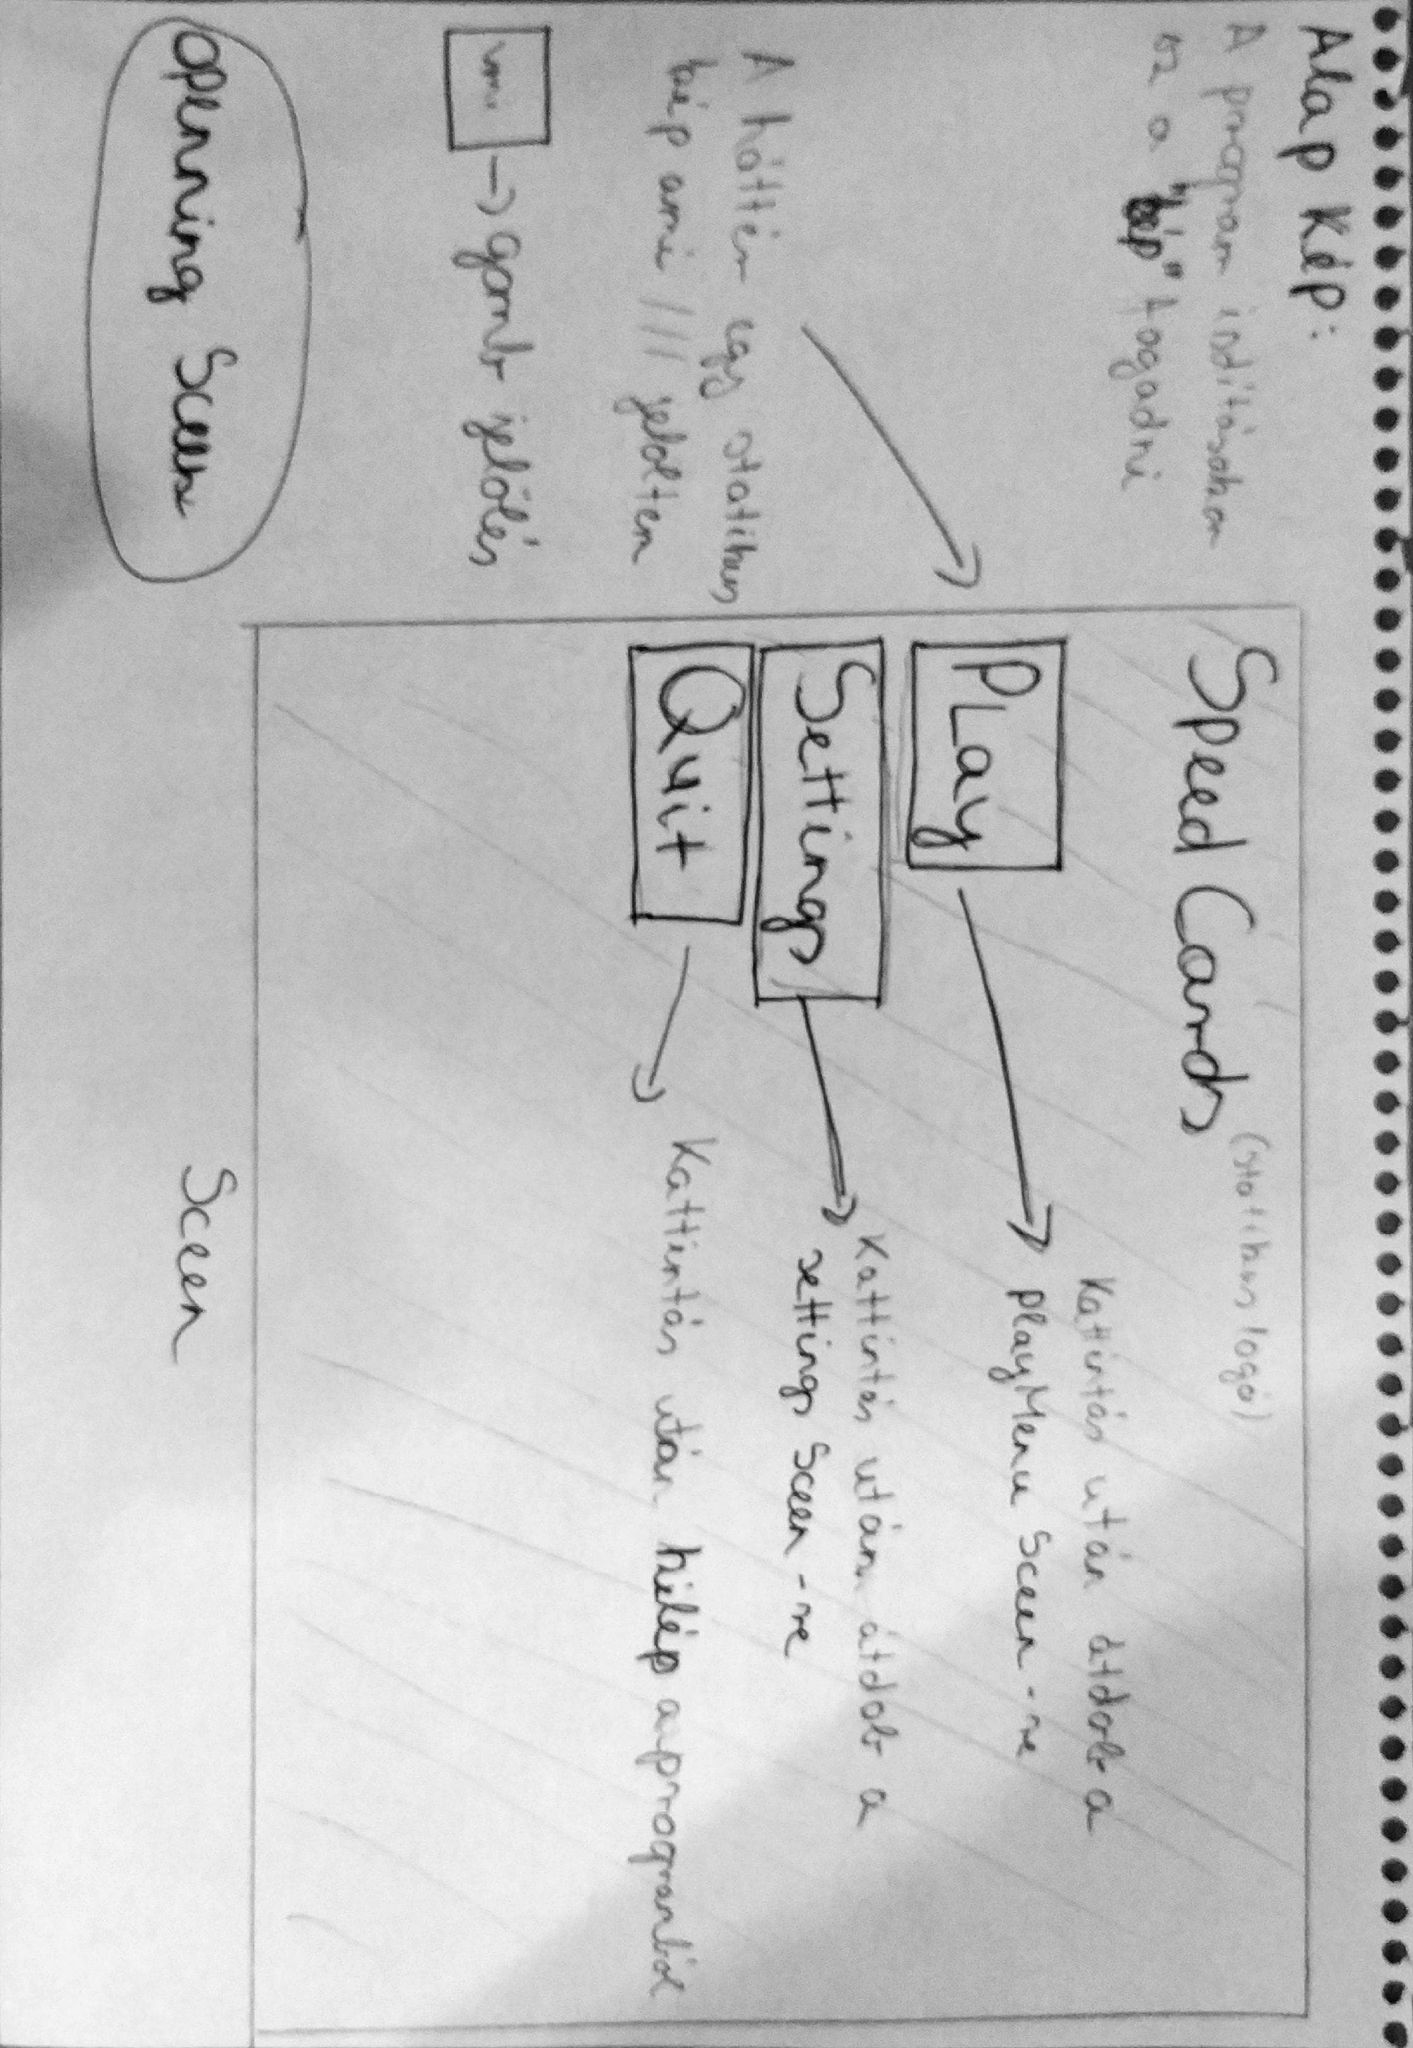 Alap Kép:
A program indításakor
ez a "kép" fogadni
A háttér egy statikus
kép ami /// jelöltem
vmi → gomb jelölés
Openning Sceen
Speed Cards (statikus logó)
Play
Kattintás után átdob a
PlayMenu Sceen-re
Settings
Kattintás után átdob a
settings Sceen-re
Quit
Kattintás után kilép a programból
Sceen